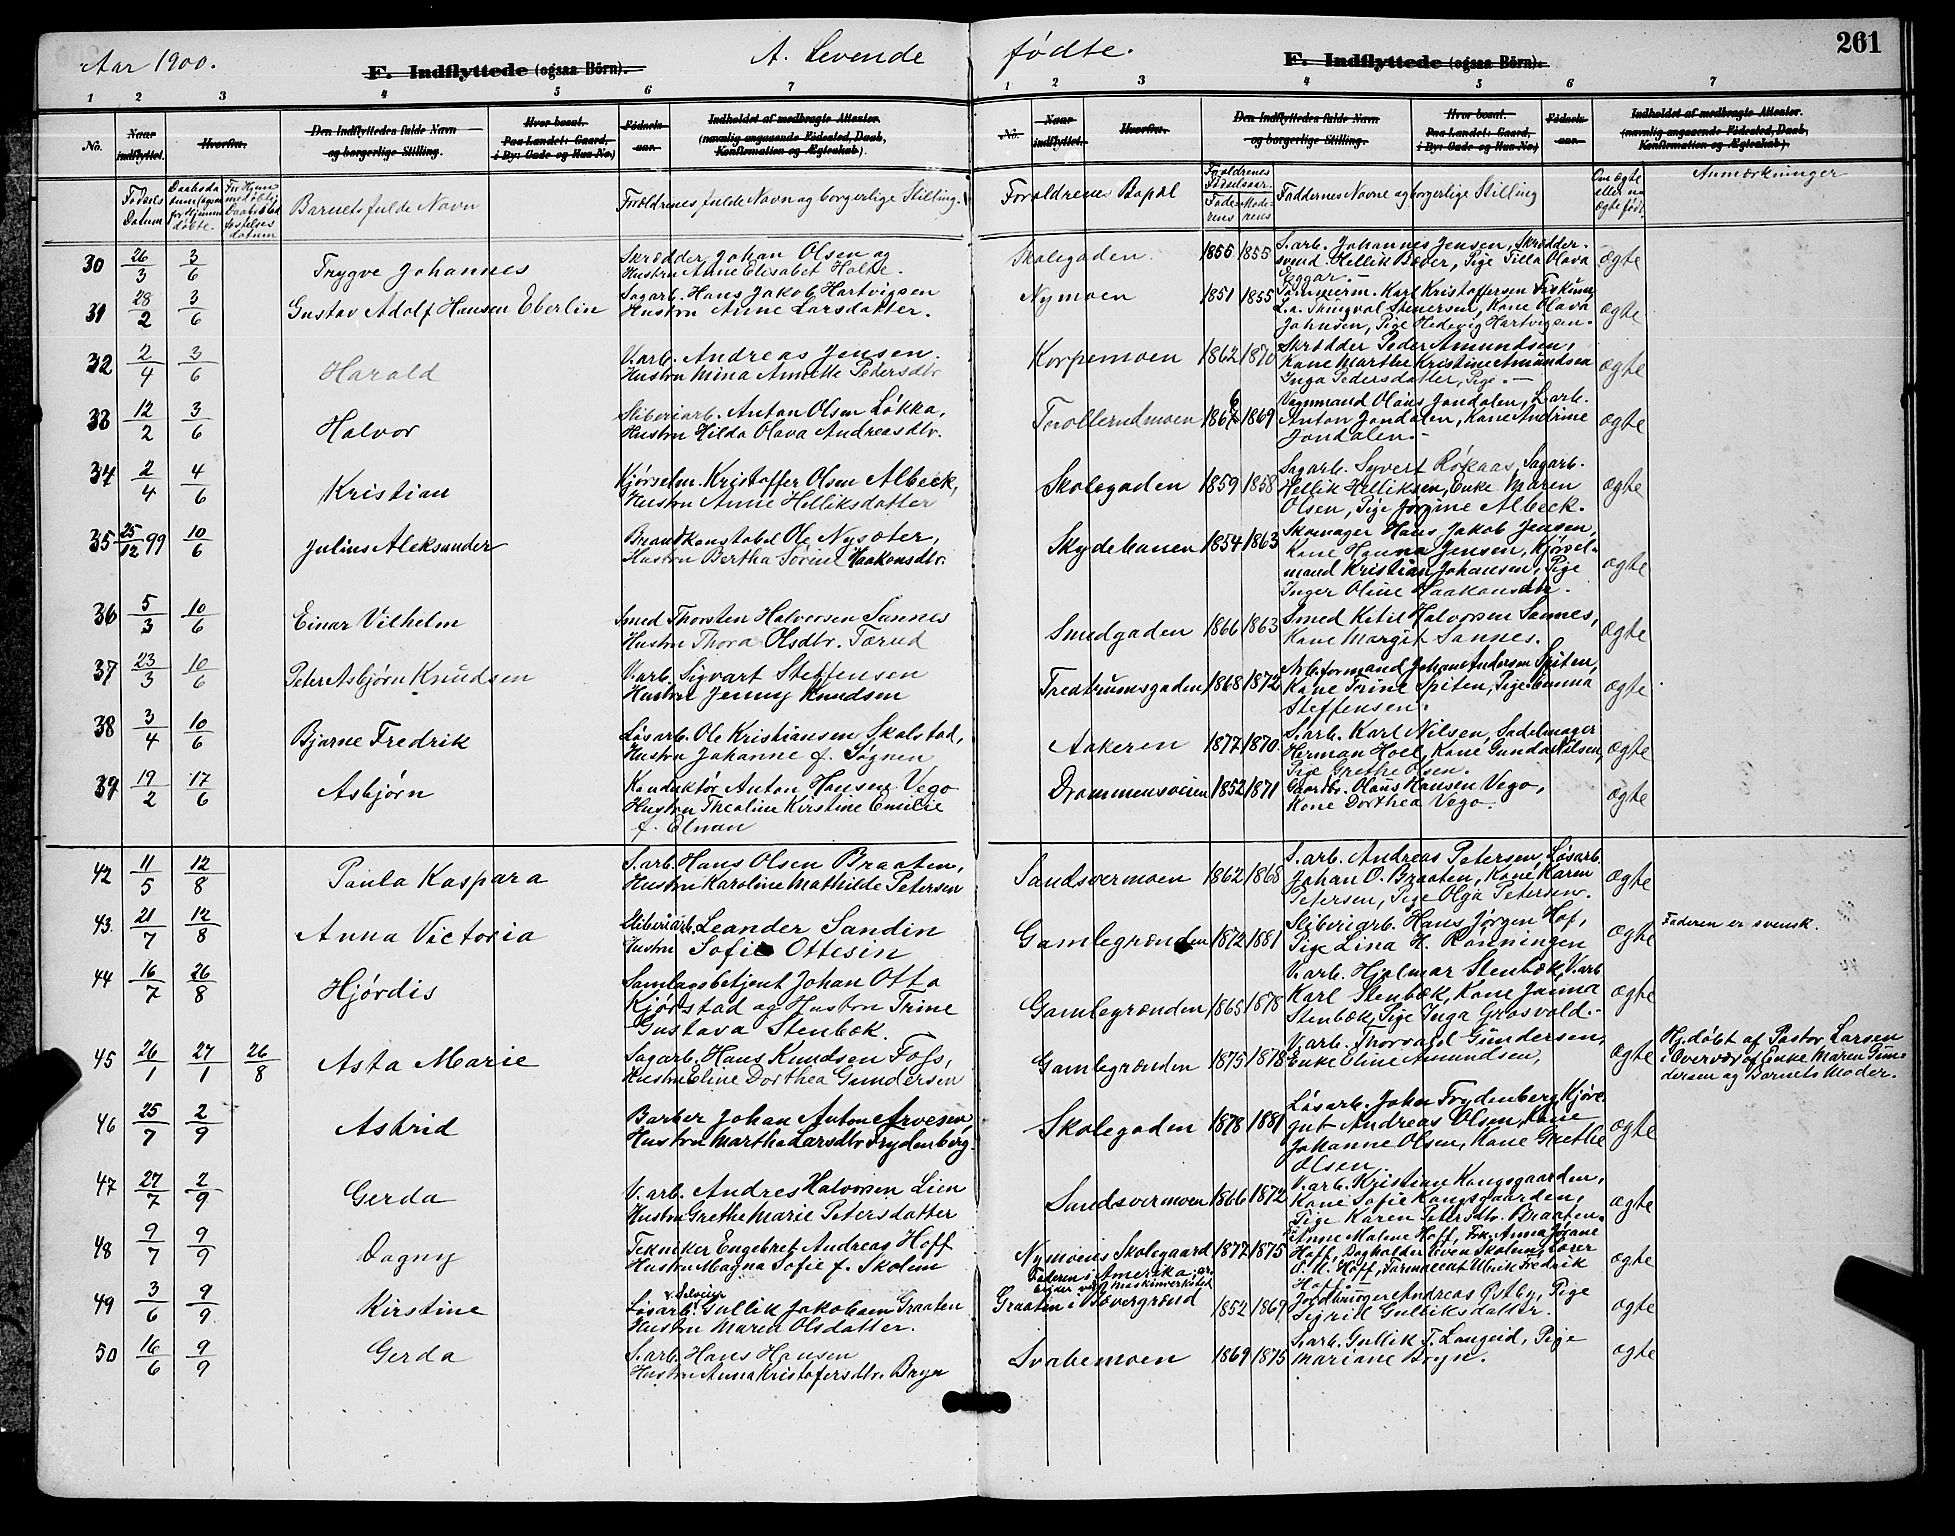 Aar 1900.
A. Levende fødte.
261
F. Indflyttede (ogsaa Börn).
F. Indflyttede (ogsaa Börn).
1 2 3 4 5 6 7
1 2 3 4 5 6 7
No. Naar indflyttet. Hvorfra. Den Indflyttedes fulde Navn og borgerlige Stilling. Hvor bosat. Paa Landet: Gaard, i By: Gade og Hus-No) Födsels-aar. Indholdet af medbragte Attester. (navnlig angaaende Födested, Daab, Konfirmation og Ægteskab).
No. Naar indflyttet. Hvorfra. Den Indflyttedes fulde Navn og borgerlige Stilling. Hvor bosat. Paa Landet: Gaard, i By: Gade og Hus-No) Födsels-aar. Indholdet af medbragte Attester. (navnlig angaaende Födested, Daab, Konfirmation og Ægteskab).
Fødsels Datum
Barnets fulde Navn
Forældrenes fulde Navn og borgerlige Stilling.
Forældrenes Bopæl
Forældrenes Fødselsaar
Faderens Moderens
Faddernes Navne og borgerlige Stilling
Om ægte eller uægte født
Anmærkninger
30 26/3 3/6 Trygve Johannes
Skrædder Johan Olsen og
Hustru Anne Elisabet Holte.
Skolegaden. 1855 1855
S.arb. Johannes Jensen, Skrædder-
svend Hellik Bæver, Pige Tilla Olava
Eggar.
ægte
31 28/2 3/6 Gustav Adolf Hansen Eberlin
Sagarb. Hans Jakob Hartvigsen
Hustru Anne Larsdatter.
Nymoen 1851 1855
Tømmerm. Karl Kristoffersen Friskum,
L.a. Thingval Stenersen, Kone Olava
Johnsen, Pige Hedevig Hartvigsen.
ægte
32 2/4 3/6 Harald
V.arb. Andreas Jensen.
Hustru Mina Annette Pedersdtr
Korpemoen 1862 1870
Skrædder Peder Amundsen,
Kone Marthe Kristine Amundsen
Inga Pedersdatter, Pige.
ægte
33 12/2 3/6 Halvor
Sliberiarb. Anton Olsen Løkka,
Hustru Hilda Olava Andreasdtr.
1869
Vognmand Olaus Jondalen, L.arb.
Anton Jondalen, Kone Andrine
Jondalen.
ægte
34 2/4 4/6 Kristian
Kjørselm. Kristoffer Olsen Albeck,
Hustru Anne Helliksdatter
Skolegaden 1859 1858
Sagarb. Syvert Røkaas, Sagarb.
Hellik Helliksen, Enke Maren
Olsen, Pige Jørgine Albeck.
ægte
35 25/12 99 10/6 Julius Aleksander
Brandkonstabel Ole Nysæter,
Hustru Bertha Sørine Haakensdtr.
Skydebanen 1854 1863
Skomager Hans Jakob Jensen,
Kone Hanna Jensen, Kjørsel-
mand Kristian Johansen, Pige
Inger Oline Haakonsdtr.
ægte
36 5/3 10/6 Einar Vilhelm
Smed Thorsten Halvorsen Sannes
Hustru Thora Olsdtr. Tærud
Smedgaden 1866 1863
Smed Ketil Halvorsen Sannes,
Kone Margit Sannes.
ægte
37 23/3 10/6 Peter Asbjørn Knudsen
V.arb. Sigvart Steffensen
Hustru Jenny Knudsen
1868 1872
Arb.formand Johan Andersen Spiten,
Kone Trine Spiten, Pige Emma
Steffensen.
ægte
38 3/4 10/6 Bjarne Fredrik
Løsarb. Ole Kristiansen Skolstad,
Hustru Johanne f. Søgnen
Aakeren 1877 1870
S.arb. Karl Nilsen, Sadelmager
Herman Hoel, Kone Gunda Nilsen,
Pige Grethe Olsen.
ægte
39 19/2 17/6 Asbjørn
Konduktør Anton Hansen Vego
Hustru Thealine Kirstine Emilie
f. Elman
Drammensveien 1852 1871
Gaardbr. Olaus Hansen Vego,
Kone Dorthea Vego.
ægte
42 11/5 12/8 Paula Kaspara
S.arb. Hans Olsen Braaten,
Hustru Karoline Mathilde Petersen
Sandsvermoen 1862 1868
S.arb. Andreas Petersen, Løsarb.
Johan O. Braaten, Kone Karen
Petersen, Pige Olga Petersen.
ægte
43. 21/7 12/8 Anna Victoria
Sliberiarb. Leander Sandin
Hustru Sofie Ottesin
Gamlegrænden 1872 1881
Sliberiarb. Hans Jørgen Hof,
Pige Lina H. Rønningen
ægte
Faderen er svensk.
44 16/7 26/8 Hjørdis
Samlagsbetjent Johan Otto
Kjørstad og Hustru Trine
Gustava Stenbæk.
Gamlegrænden 1865 1878
V.arb. Hjalmar Stenbæk, V.arb
Karl Stenbæk, Kone Janna
Stenbæk, Pige Inga Grosvold.
ægte
45 26/1 27/1 26/8 Asta Marie
Sagarb. Hans Knudsen Fofs,
Hustru Eline Dorthea Gundersen
Gamlegrænden 1875 1878
V.arb. Thorvald Gundersen,
Enke Eline Amundsen,
ægte
Hj.døbt af Pastor Larsen
i Overvær af Enke Maren Gun-
dersen og Barnets Moder.
46 25/7 2/9 Astrid
Barber Johan Anton Arvesen,
Hustru Martha Larsdtr. Frydenberg
Skolegaden 1878 1881
Løsarb. John Frydenberg, Kjøre-
gut Andreas Olsen, Kone
Johanne Olsen, Kone Grethe
Olsen.
ægte
47 27/7 2/9 Gerda
V.arb. Andres Halvorsen Lien
Hustru Grethe Marie Petersdatter
Sandsvermoen 1866 1872
V.arb. Kristian Kongsgaarden,
Kone Sofie Kongsgaarden,
Pige Karen Petersdtr. Braaten.
ægte
48 9/7 9/9 Dagny
Tekniker Engebret Andreas Hoff
Hustru Magna Sofie f. Skolem
Nymoens Skolegaard 1877 1875
Anne Maline Hoff, Frk. Anna Jørane
Hoff, Bogholder Even Skolem,
O. H. Hoff, Farmaceut Ulrik Fredrik
Hoff
ægte
49 3/6 9/9 Kirstine
Løsarb. Gullik Jakobsen Graaten
Hustru Maren Olsdatter.
Faderen i Amerika,
Graaten i Bævergrænd 1852 1869
Jordbruger Andreas Østby, Pige
Sigrid Gulliksdatter.
ægte
50 16/6 9/9 Gerda
S.arb. Hans Hansen
Hustru Anna Kristofersdtr. Bryn
Svabemoen 1869 1875
S.arb. Gullik T. Langeid, Pige
Mariane Bryn.
ægte